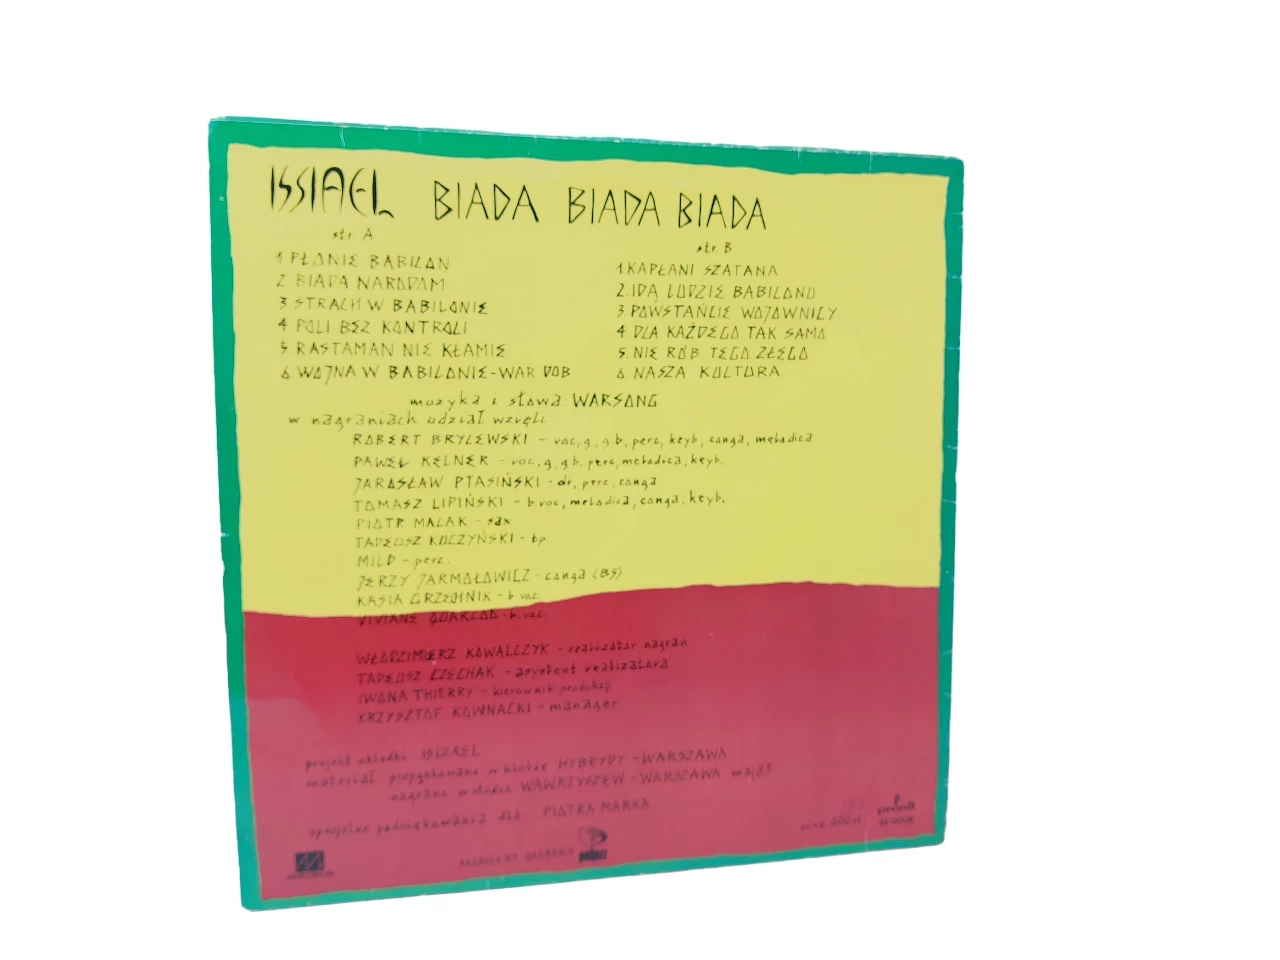 ISSIAEL BIADA BIADA BIADA
str A
1 PŁONIE BABILON
2 BIADA NARODOM
3 STRACH W BABILONIE
4 POLI BEZ KONTROLI
5. RASTAMAN NIE KŁAMIE
6. WOJNA W BABILONIE-WAR DOB
str. B
1. KAPŁANI SZATANA
2. IDĄ LUDZIE BABILONU
3 POWSTAŃCIE WOJOWNICY
4 DLA KAŻDEGO TAK SAMO
5. NIE RÓB TEGO ZŁEGO
6. NASZA KULTURA
muzyka i słowa: WARSONG
w nagraniach udział wzięli:
ROBERT BRYLEWSKI - voc, g, g.b, perc, keyb, conga, melodica
PAWEŁ KELNER - voc, g, g.b. perc, melodica, keyb.
JAROSŁAW PTASIŃSKI - dr, perc, conga
TOMASZ LIPIŃSKI - b voc, melodica, conga, keyb.
PIOTR MALAK - sax
TADEUSZ KUCZYŃSKI - tp.
MILO - perc.
JERZY JARMOŁOWICZ - conga (B5)
KASIA GRZECHNIK - b voc.
VIVIANE QUARCOO - b. voc.
WŁODZIMIERZ KOWALCZYK - realizator nagrań
TADEUSZ CZECHAK - asystent realizatora
IWONA THIERRY - kierownik produkcji
KRZYSZTOF KOWNACKI - manager
projekt okładki ISIZAEL
materiał przygotowano w klubie HYBRYDY - WARSZAWA
nagrano w studio WAWRZYSZEW - WARSZAWA maj 83
specjalne podziękowania dla PIOTRA MARKA